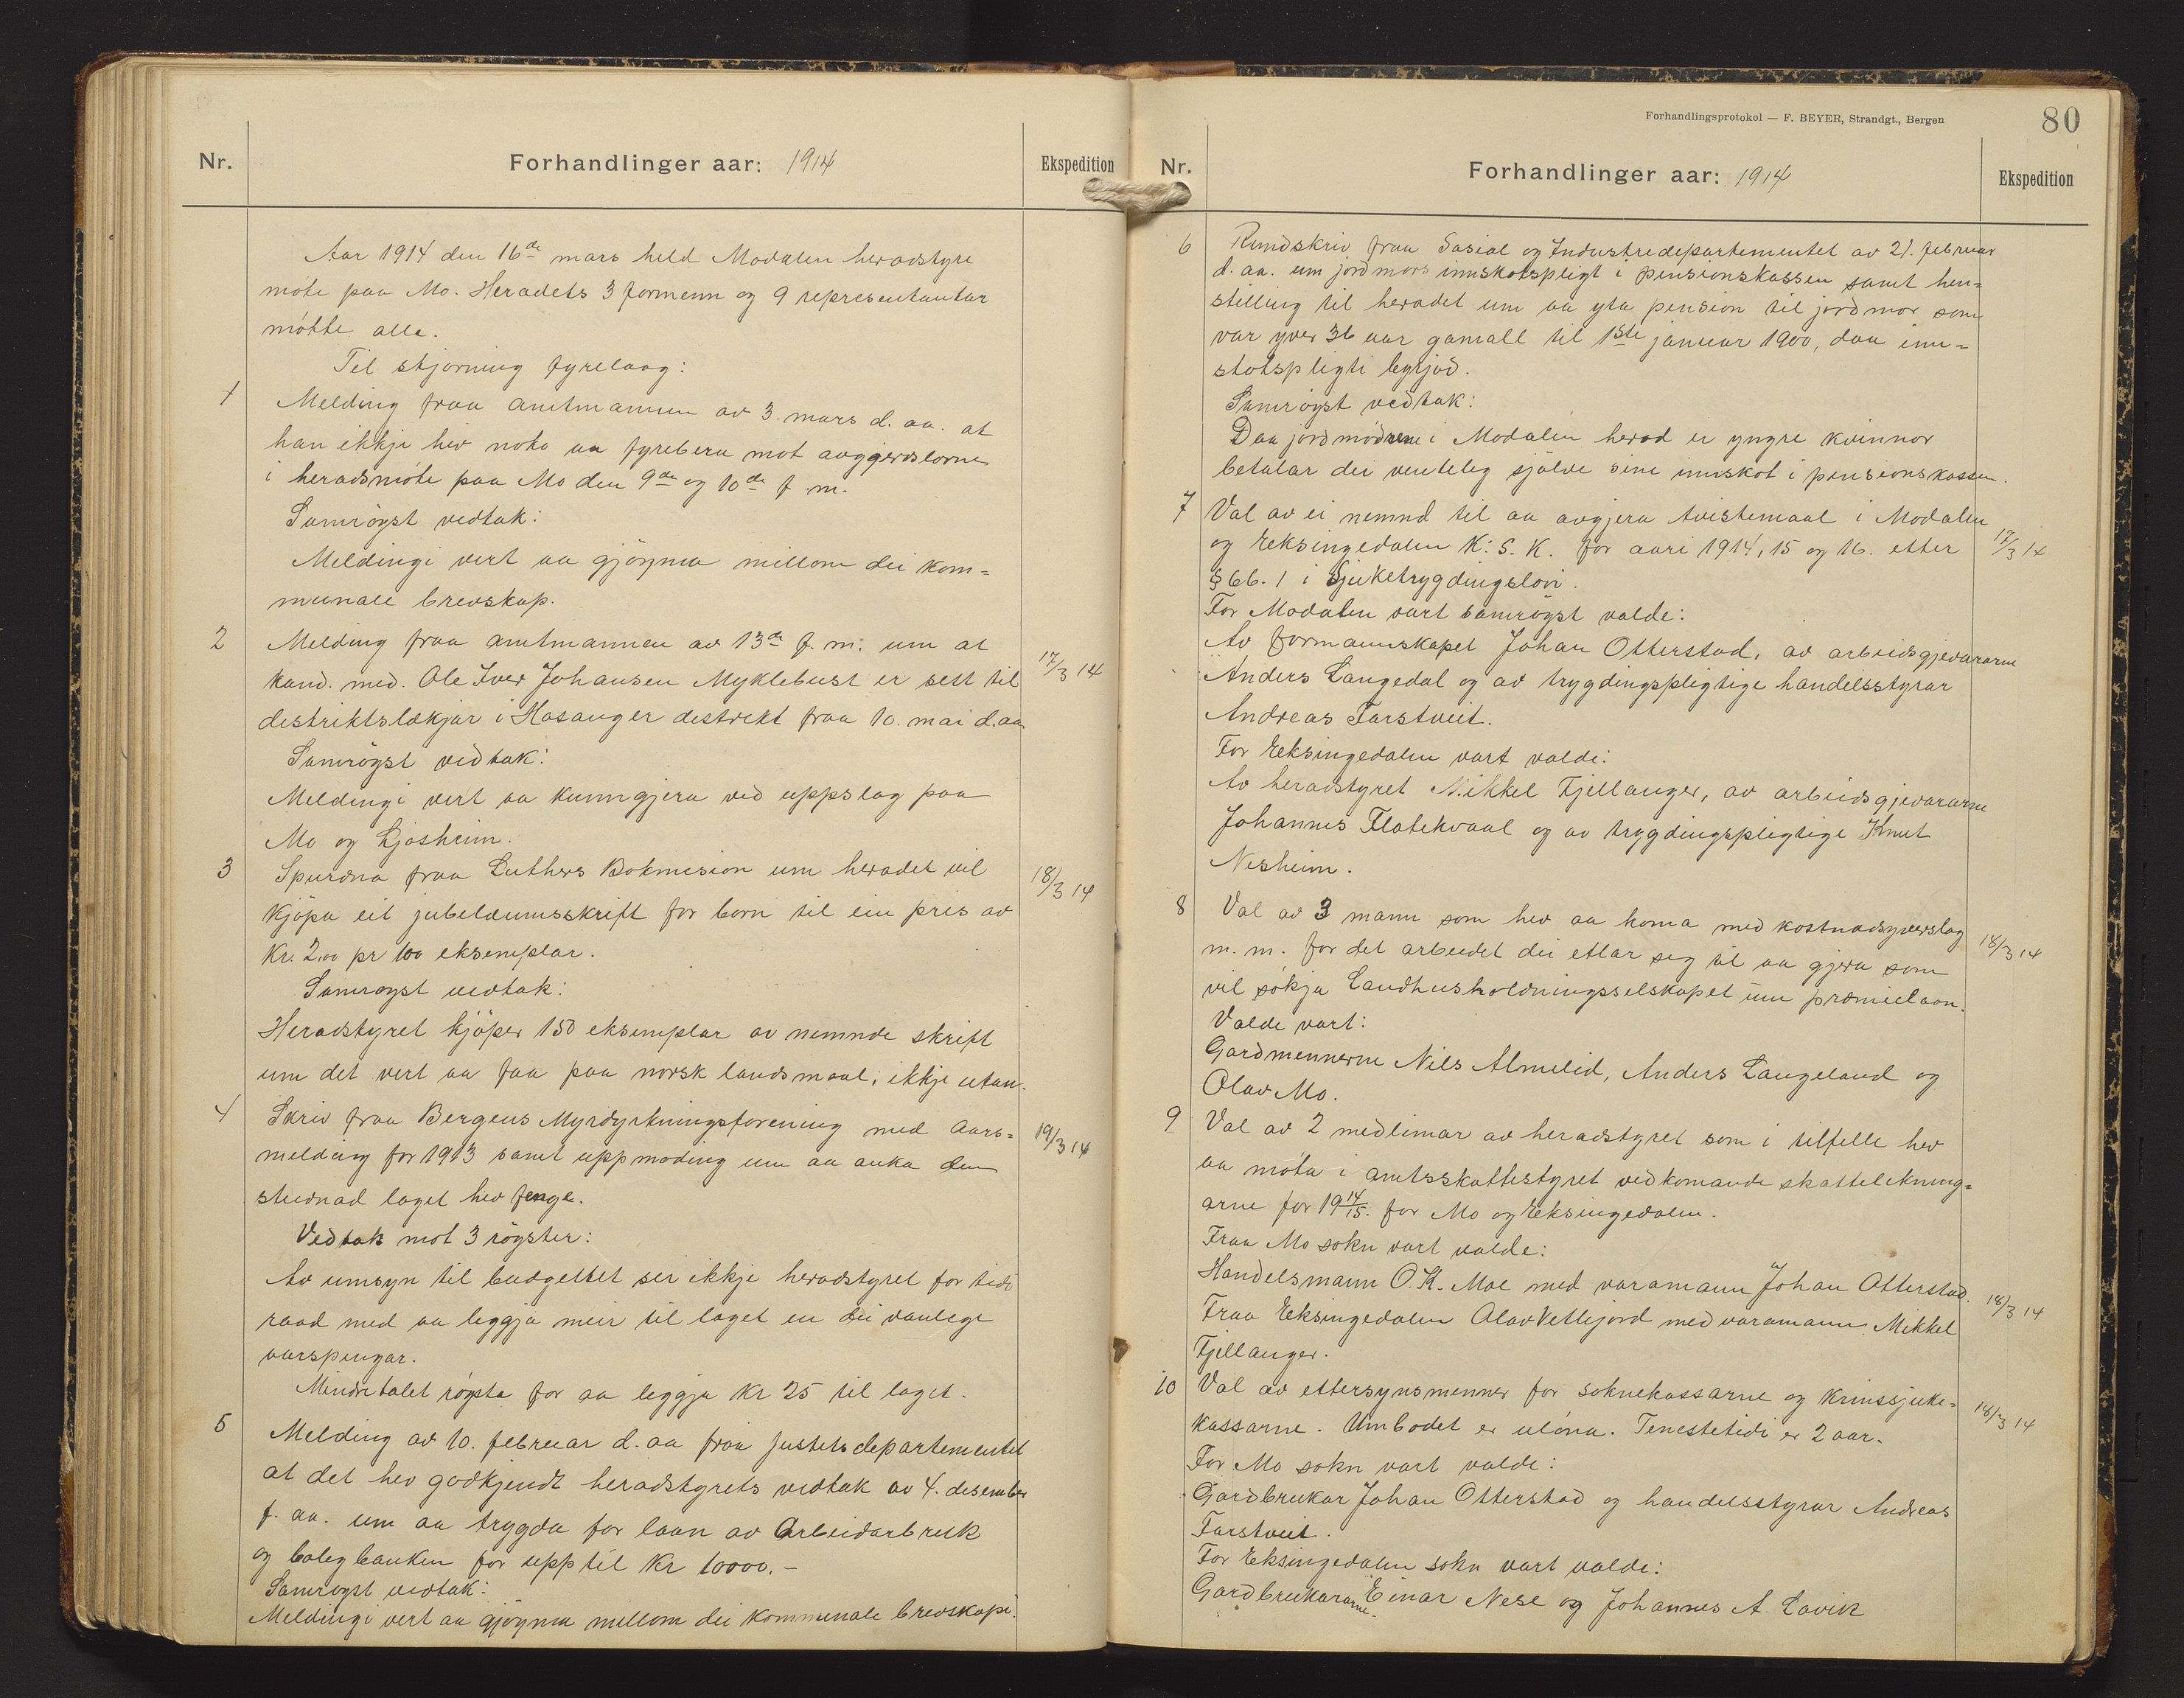 Nr.
Forhandlinger aar: 1914
Ekspedition
Aar 1914 den 16de mars held Modalen heradstyre
møte paa Mo. Heradets 3 formenn og 9 representantar
møtte alle.
Til stjorning fyrelaag:
1 Melding fraa amtmannen av 3. mars d. aa. at
han ikkje hev noko aa fyrebera mot avgjerslorne
i heradsmøte paa Mo den 9de og 10de f. m.
Samrøyst vedtak:
Meldingi vert aa gjøyma millom dei kom-
munale brevskap.
2 Melding fraa amtmannen av 13de f. m. um at
kand. med. Ole Iver Johansen Myklebust er sett til 17/3 14
destriktslækjar i Hosanger destrikt fraa 10. mai d. aa.
Samrøyst vedtak:
Meldingi vert aa kunngjera ved uppslag paa
Mo og Ljosheim.
3 Spursna fraa Luthers Bokmision um heradet vil 18/3 14
kjøpa eit jubelæumsskrift for born til ein pris av
kr. 2.00 pr 100 eksemplar.
Samrøyst vedtak:
Heradstyret kjøper 150 eksemplar av nemnde skrift
um det vert aa faa paa norsk landsmaal, ikkje utan.
4 Skriv fraa Bergens Myrdyrkningsforening med aars- 19/3 14
melding for 1913 samt uppmoding um aa auka den
studnad laget hev fenge.
Vedtak mot 3 røyster:
Av umsyn til budgettet ser ikkje heradstyret for tidi
raad med aa leggja meir til laget en dei vanlege
aarspengar.
Mindretalet røysta for aa leggja kr 25 til laget.
5 Melding av 10. februar d. aa fraa Justetsdepartementet
at det hev godkjendt heradstyrets vedtak av 4. desember
f. aa. um aa trygda for laan av Arbeidarbruk
og bolegbanken for upp til kr 10000.-
Samrøyst vedtak:
Meldingi vert aa gjøyma millom dei kommunale brevskapi.
Forhandlingsprotokol — F. BEYER, Strandgt., Bergen
80
Nr.
Forhandlinger aar: 1914
Ekspedition
6 Rundskriv fraa Sosial og Industredepartementet av 21. februar
d. aa. um jordmors innskotspligt i pensionskassen samt hen-
stilling til heradet um aa yta pension til jordmor som
var yver 36 aar gamall til 1ste januar 1900, daa inn-
skotspligti byrjad.
Samrøyst vedtak:
Daa jordmødrene i Modalen herad er yngre kvinnor
betalar dei venteleg sjølve sine innskot i pensionskassen.
7 Val av ei nemnd til aa avgjera tvistemaal i Modalen
og Eksingedalen K. S. K. for aari 1914, 15 og 16. etter 17/3 14
§ 66. 1 i Sjuketrygdingslovi.
For Modalen vart samrøyst valde:
Av formannskapet Johan Otterstad, av arbeidsgjevararne
Anders Langedal og av trygdingspligtige handelsstyrar
Andreas Farstveit.
For Eksingedalen vart valde:
Av heradstyret Mikkel Fjellanger, av arbeidsgjevararne
Johannes Flatekvaal og av trygdingspligtige Knut
Nesheim.
8 Val av 3 mann som hev aa koma med kostnadsyverslag 18/3 14
m. m. for det arbeidet dei etlar seg til aa gjera som
vil søkja Landhusholdningsselskapet um præmielaan.
Valde vart:
Gardmennerne Nils Almelid, Anders Langeland og
Olav Mo.
9 Val av 2 medlimar av heradstyret som i tilfelle hev
aa møta i amtsskattestyret vedkomande skattelikning-
arne for 1914/15. for Mo og Eksingedalen.
Fraa Mo sokn vart valde:
Handelsmann O. K. Moe med varamann Johan Otterstad. 18/3 14
Fraa Eksingedalen Olav Vetlejord med varamann Mikkel
Fjellanger.
10 Val av ettersynsmenner for soknekassarne og krinssjuke- 18/3 14
kassarne. Umbodet er uløna. Tenestetidi er 2 aar.
For Mo sokn vart valde:
Gardbrukar Johan Otterstad og handelsstyrar Andreas
Farstveit.
For Eksingedalen sokn vart valde:
Gardbrukararne Einar Nese og Johannes A Lavik